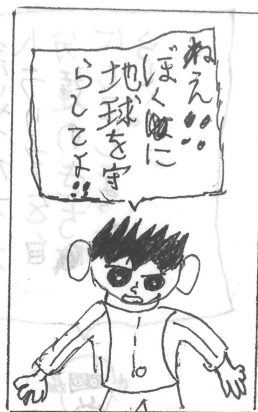 ねえ!!
ぼくに
地球を守
らしてよ!!